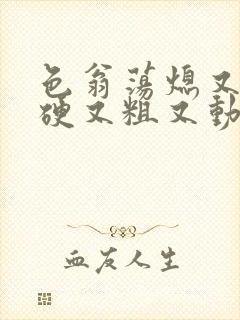 色翁荡熄又
硬又粗又動
血友人生